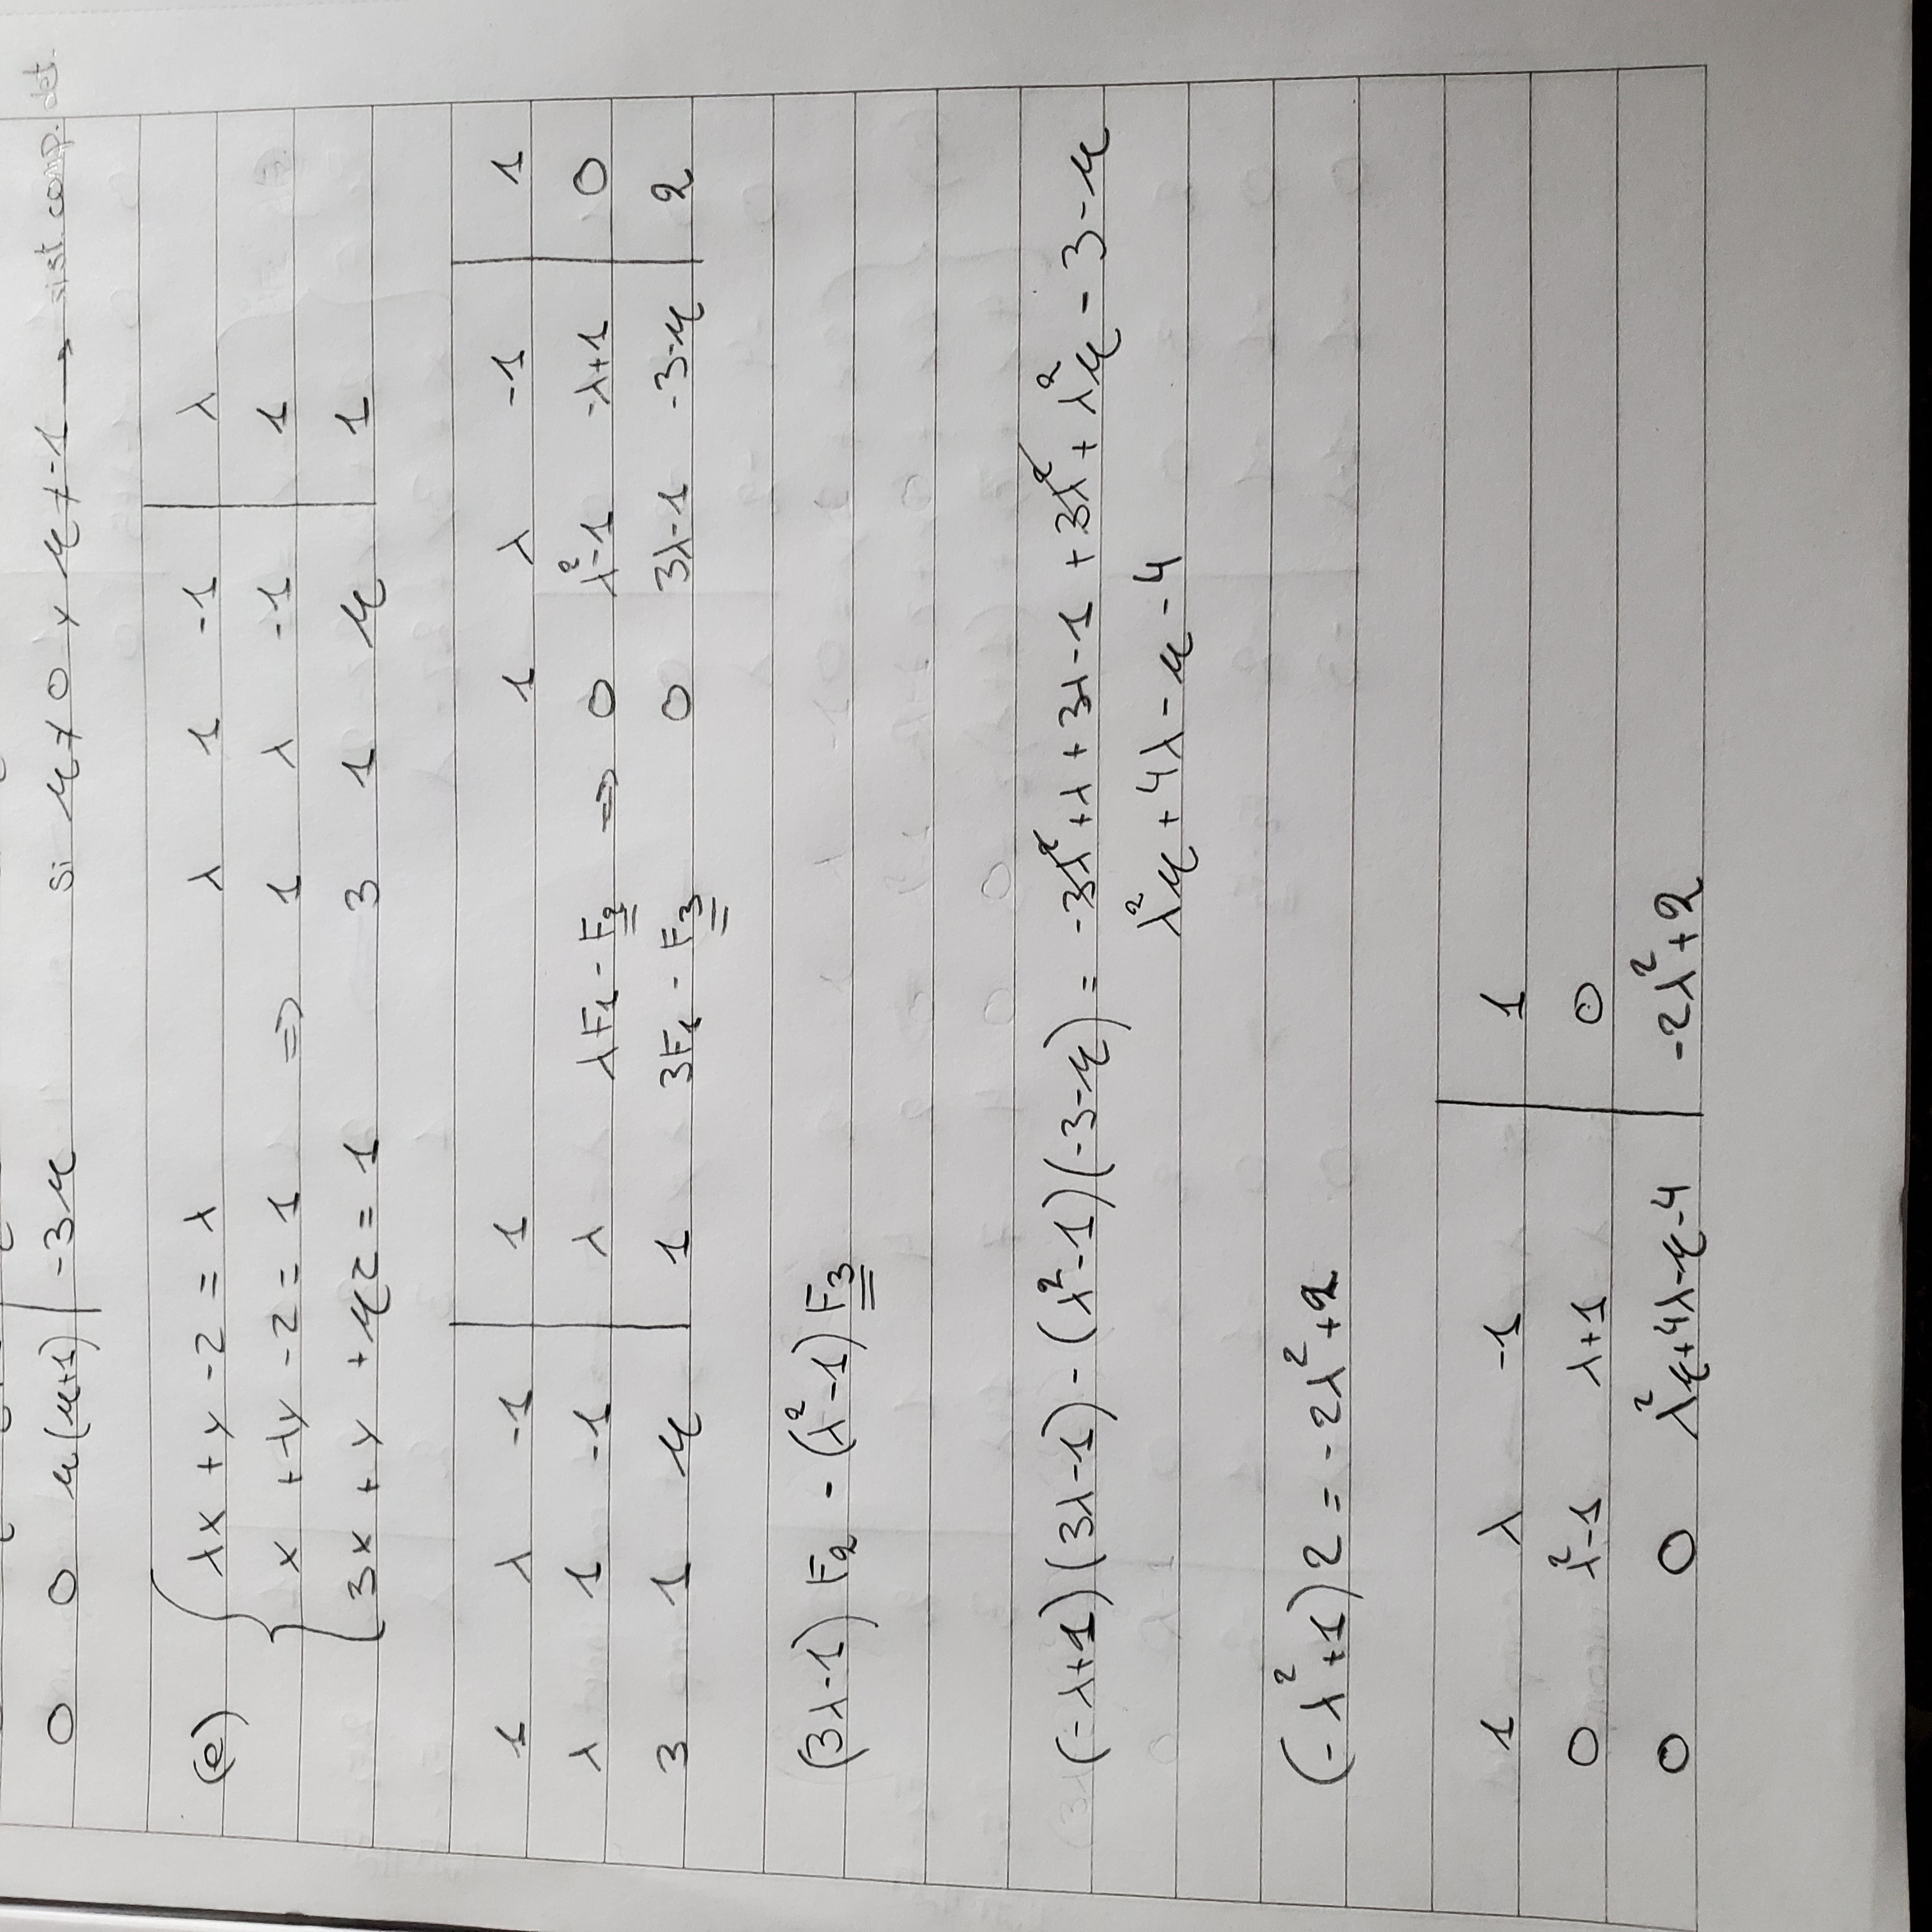 0 0 μ(μ+1) | -3μ si μ ≠ 0 y μ ≠ -1 → sist. comp. det.
(e) { λx + y - z = λ λ 1 -1 | λ
x + λy - z = 1 => 1 λ -1 | 1
3x + y + μz = 1 3 1 μ | 1
1 λ -1 | 1 1 λ -1 | 1
λ 1 -1 | λ λF₁ - F₂ => 0 λ²-1 -λ+1 | 0
3 1 μ | 1 3F₁ - F₃ 0 3λ-1 -3-μ | 2
(3λ-1) F₂ - (λ²-1) F₃
(-λ+1)(3λ-1) - (λ²-1)(-3-μ) = -3λ² + λ + 3λ - 1 + 3λ² + λ²μ - 3 - μ
λ²μ + 4λ - μ - 4
(-λ²+1) 2 = -2λ² + 2
1 λ -1 | 1
0 λ²-1 λ+1 | 0
0 0 λ²μ+4λ-μ-4 | -2λ²+2